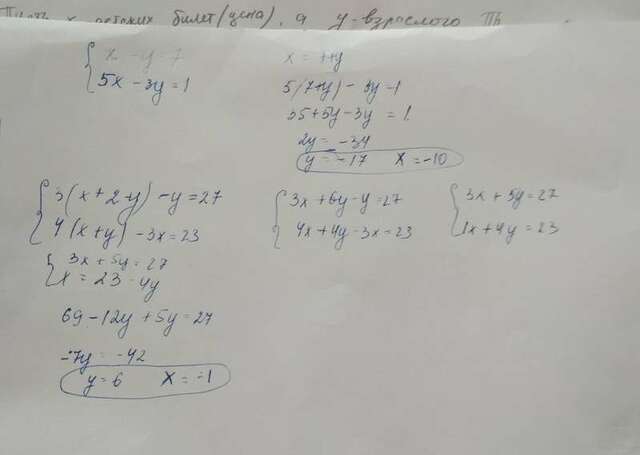 x детских билет (цена), а y - взрослого
x - y = 7
5x - 3y = 1
x = 7+y
5(7+y) - 3y = 1
35 + 5y - 3y = 1
2y = -34
y = -17 x = -10
3(x + 2y) - y = 27
4(x+y) - 3x = 23
3x + 6y - y = 27
4x + 4y - 3x = 23
3x + 5y = 27
1x + 4y = 23
3x + 5y = 27
x = 23 - 4y
69 - 12y + 5y = 27
-7y = -42
y = 6 x = -1